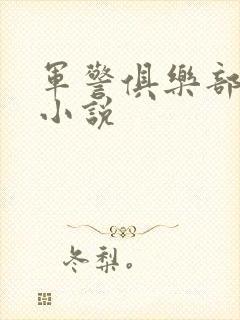 軍警俱樂部
小說
冬梨。